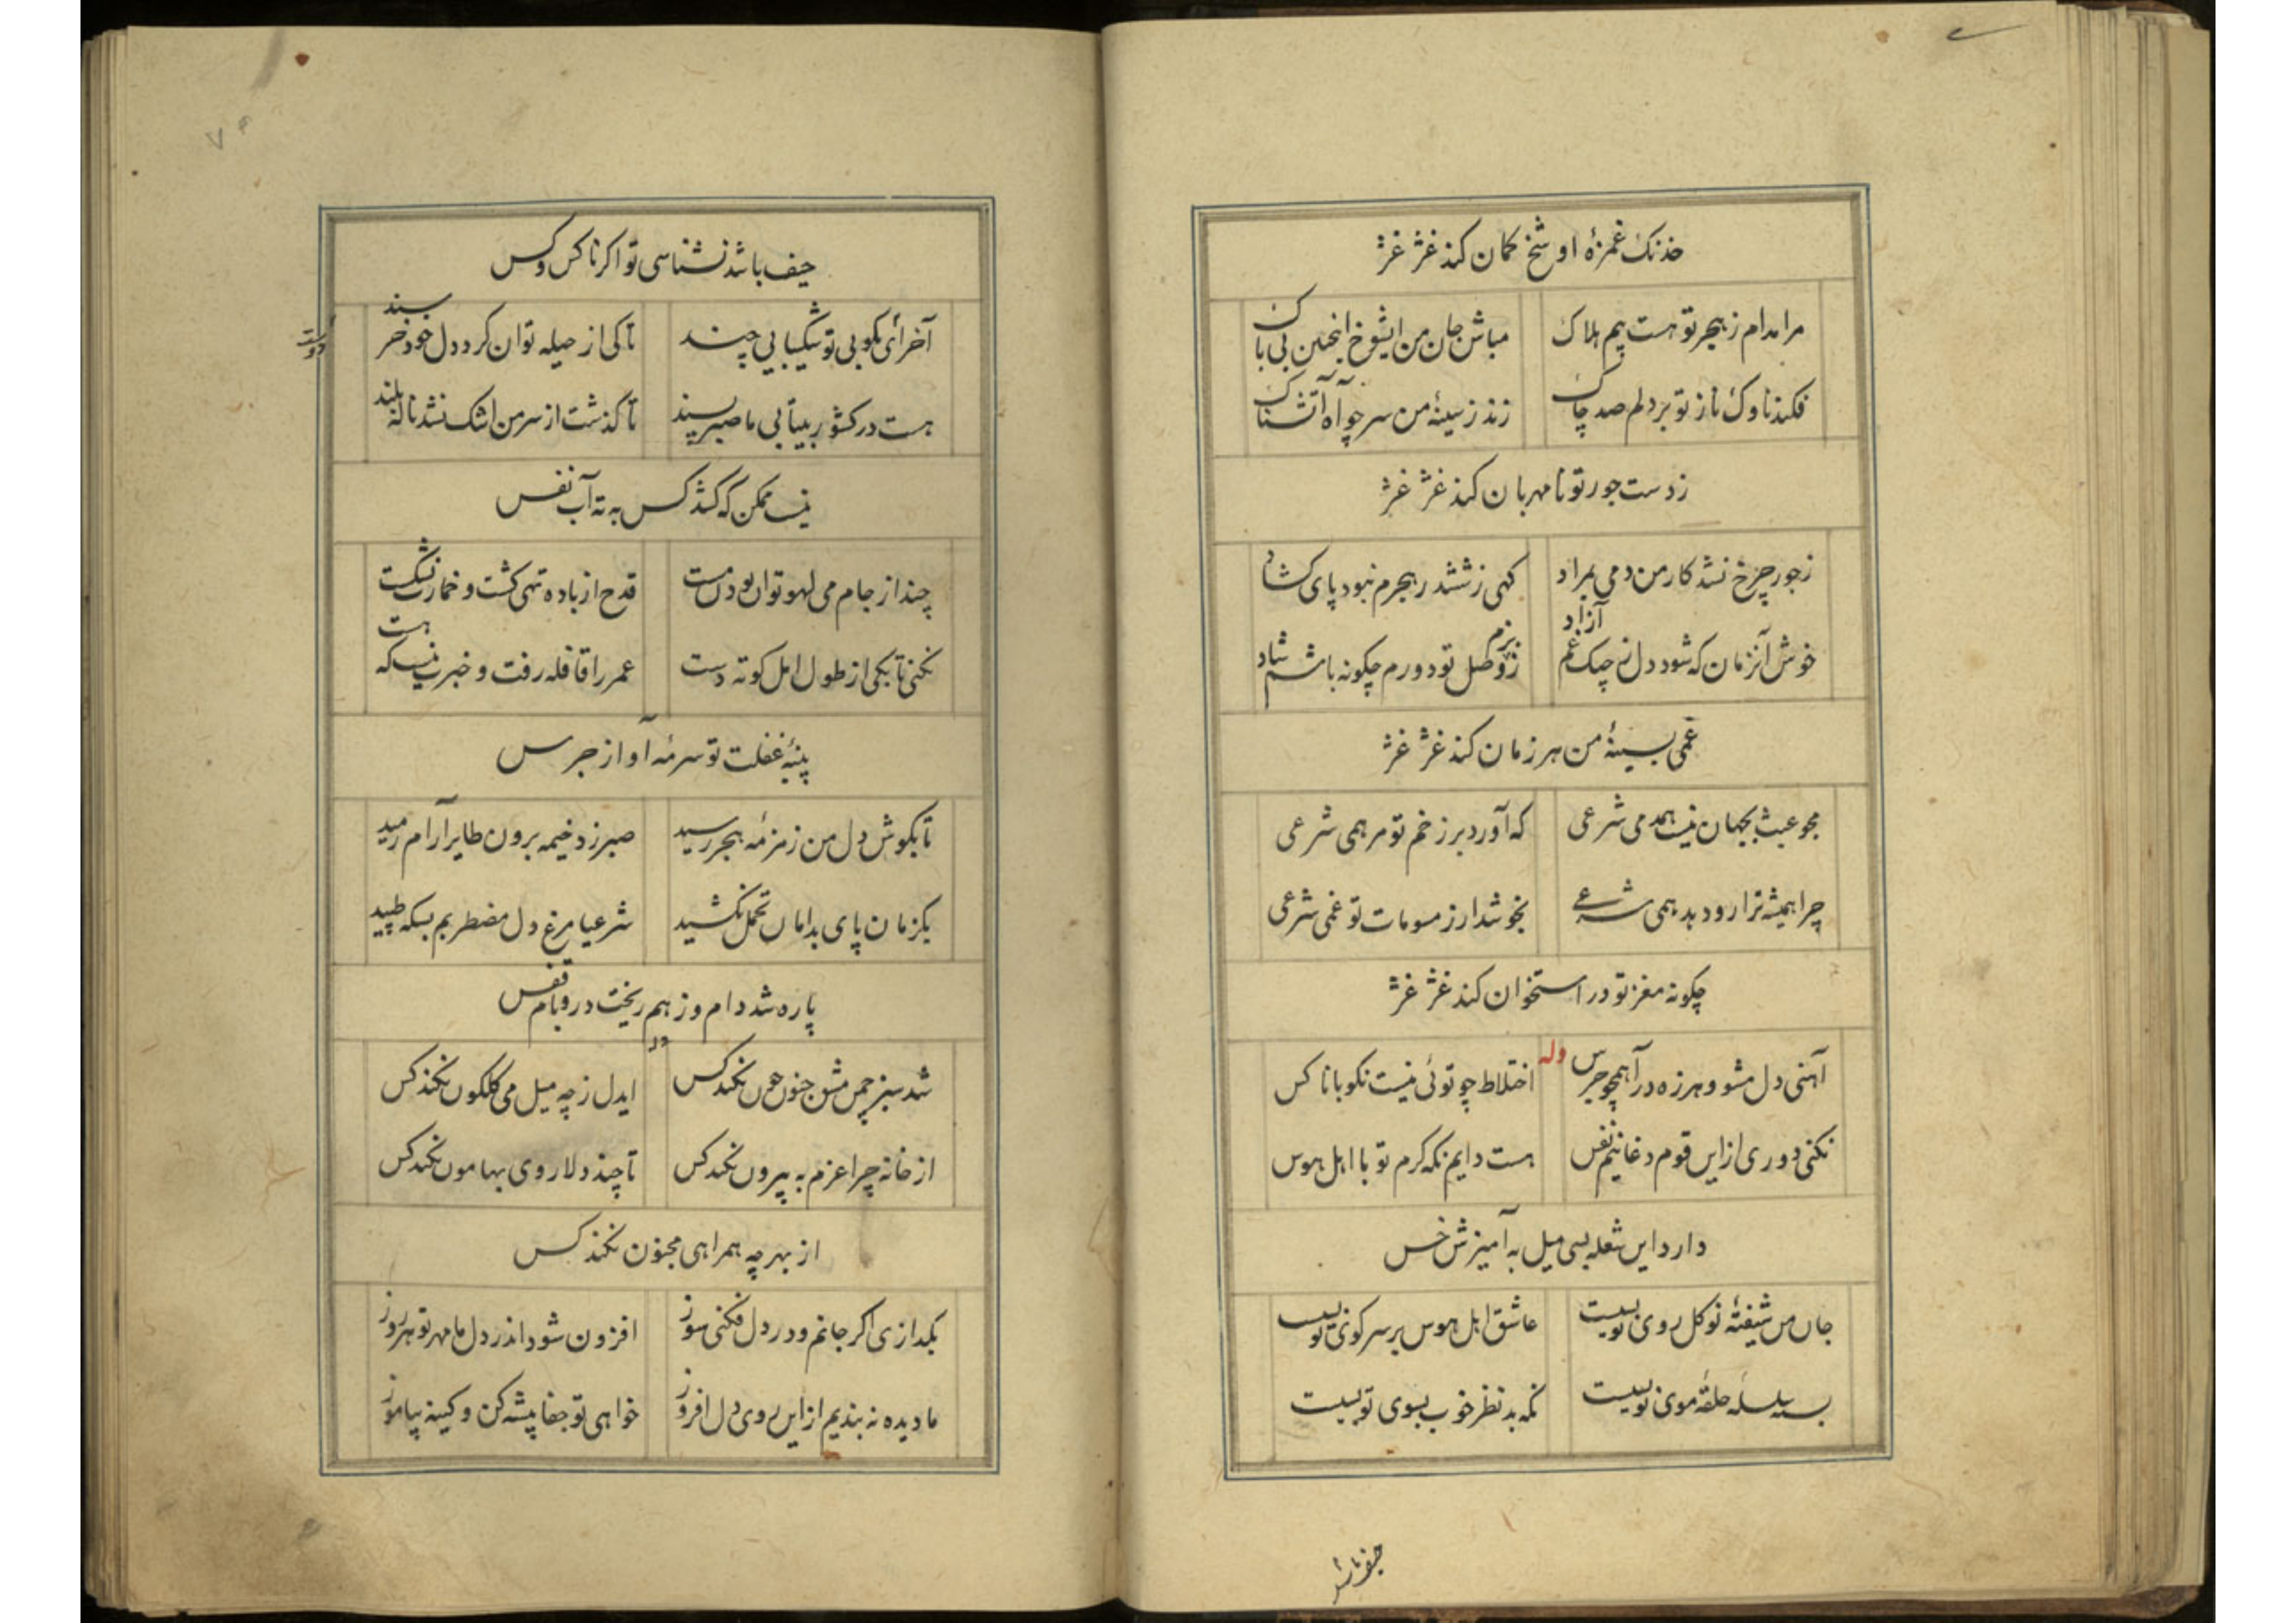 خدنک غمزهٔ او شخ کمان کند غژ غژ
مرا مدام ز هجر تو هست بیم هلاک مباش جان من ای شوخ اینچنین بی باک
فکند ناوک ناز تو بر دلم صد چاک زند ز سینهٔ من سر چو آه آتشناک
ز دست جور تو نامهربان کند غژ غژ
ز جور چرخ نشد کار من دمی بمراد کهی ز ششدر هجرم نبود پای کشاد
خوش آنزمان که شود دل ز چنک غم آزاد ز بزم وصل تو دورم چکونه باشم شاد
غمی بسینهٔ من هر زمان کند غژ غژ
مجو عبث بجهان نیست همدمی شرعی که آورد بر زخم تو مرهمی شرعی
چرا همیشه ترا رو دهد همی شرعی تو غمی شرعی
چکونه مغز تو در استخوان کند غژ غژ
وله
آهنی دل مشو و هرزه درآ همچو جرس اختلاط چو توئی نیست نکو با ناکس
نکنی دوری از این قوم دغا نیم نفس هست دایم نکه کرم تو با اهل هوس
دارد این شعله بسی میل به آمیزش خس
جان من شیفتهٔ نو کل روی تو بسیست عاشق اهل هوس بر سر کوی تو بسیست
بستهٔ سلسله حلقهٔ موی تو بسیست نکه بد نظر خوب بسوی تو بسیست
حیف باشد
حیف باشد نشناسی تو اکر ناکس و کس
آخر ای نکو بی تو شکیبایی چند تا کی از حیله توان کرد دل خود خرسند
هست در کشور بیتابی ما صبر سپند تا کذشت از سر من اشک نشد ناله بلند
نیست ممکن که کشد کس به ته آب نفس
چند از جام می لهو توان بودن مست قدح از باده تهی کشت و خمارت نشکست
نکنی تا بکی از طول امل کوته دست عمر را قافله رفت و خبرت نیست که هست
پنبهٔ غفلت تو سرمهٔ آواز جرس
تا بکوش دل من زمزمهٔ هجر رسید صبر زد خیمه برون طایر آرام رمید
یکزمان پای بدامان تحمل نکشید شرعیا مرغ دل مضطربم بسکه طپید
پاره شد دام و ز هم ریخت در و بام قفس
وله
شد سبز چمن مشق جنون چون نکند کس ایدل ز چه میل می کلکون نکند کس
از خانه چرا عزم به بیرون نکند کس تا چند دلا روی بهامون نکند کس
از بهر چه همراهی مجنون نکند کس
بکدازی اکر جانم و در دل فکنی سوز افزون شود اندر دل ما مهر تو هر روز
ما دیده نه بندیم از این روی دل افروز خواهی تو جفا پیشه کن و کینه بیاموز